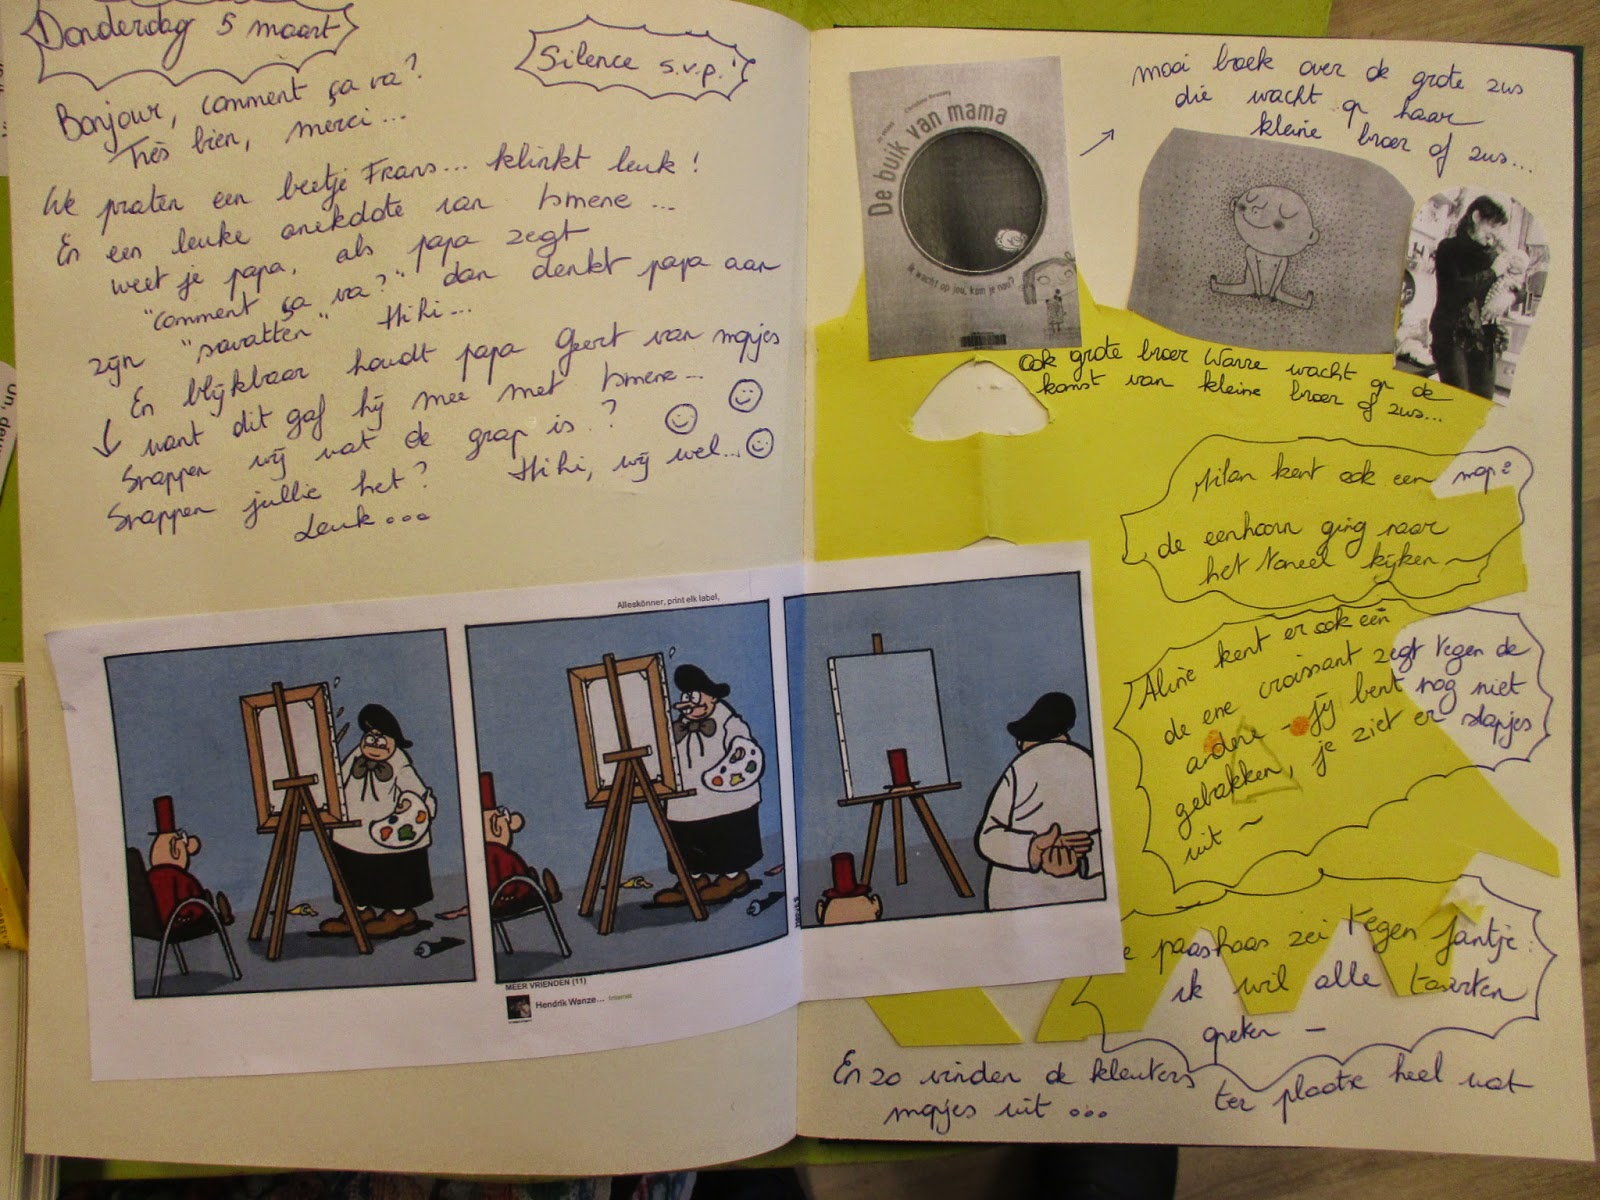 Donderdag 5 maart
Silence s.v.p.!
Bonjour, comment ça va?
Très bien, merci...
We praten een beetje Frans... klinkt leuk!
En een leuke anekdote van Ismene...
weet je papa, als papa zegt
"comment ça va?" dan denkt papa aan
zijn "savatten" Hihi...
En blijkbaar houdt papa Geert van mopjes
want dit gaf hij mee met Ismene...
Snappen wij wat de grap is?
Snappen jullie het? Hihi, wij wel...
Leuk...
Alleskönner, print elk label,
MEER VRIENDEN (11)
Hendrik Wanze...
De buik van mama
Ik wacht op jou, kom je nou?
mooi boek over de grote zus
die wacht op haar
kleine broer of zus...
Ook grote broer Warre wacht op de
komst van kleine broer of zus...
Milan kent ook een mop:
de eenhoorn ging naar
het toneel kijken ~
Aline kent er ook één
de ene croissant zegt tegen de
andere - jij bent nog niet
gebakken, je ziet er slapjes
uit ~
e paashaas zei tegen Jantje:
ik wil alle taarten
-
En zo vinden de kleuters ter plaatse heel wat
mopjes uit...